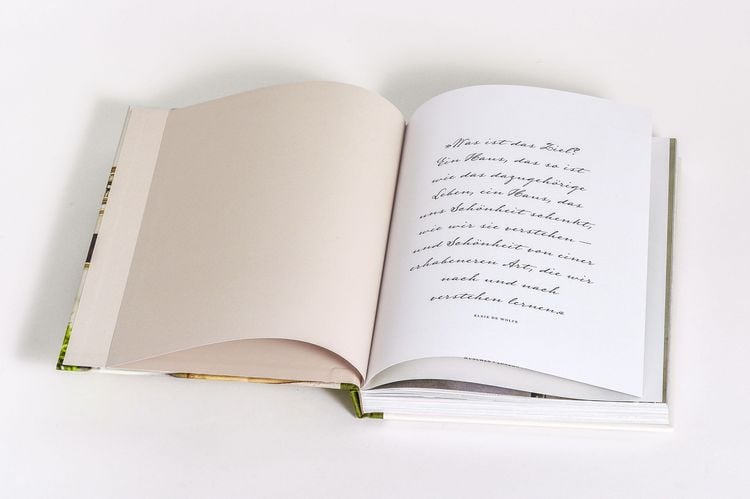 »Was ist das Ziel?
Ein Haus, das so ist
wie das dazugehörige
Leben, ein Haus, das
uns Schönheit schenkt,
wie wir sie verstehen –
und Schönheit von einer
erhabeneren Art, die wir
nach und nach
verstehen lernen.«
ELSIE DE WOLFE